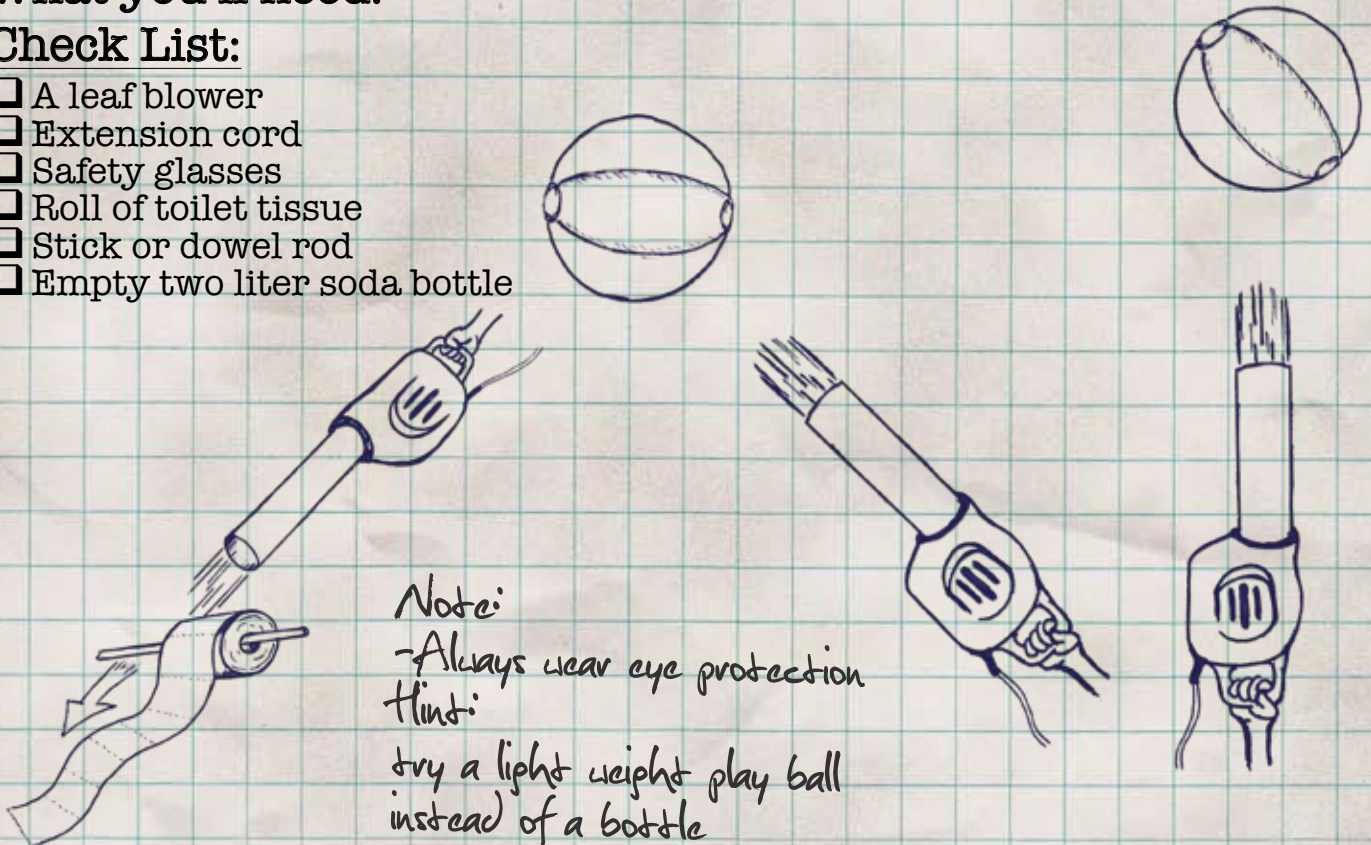 What you'll need:
Check List:
A leaf blower
Extension cord
Safety glasses
Roll of toilet tissue
Stick or dowel rod
Empty two liter soda bottle
Note:
-Always wear eye protection
Hint:
try a light weight play ball
instead of a bottle